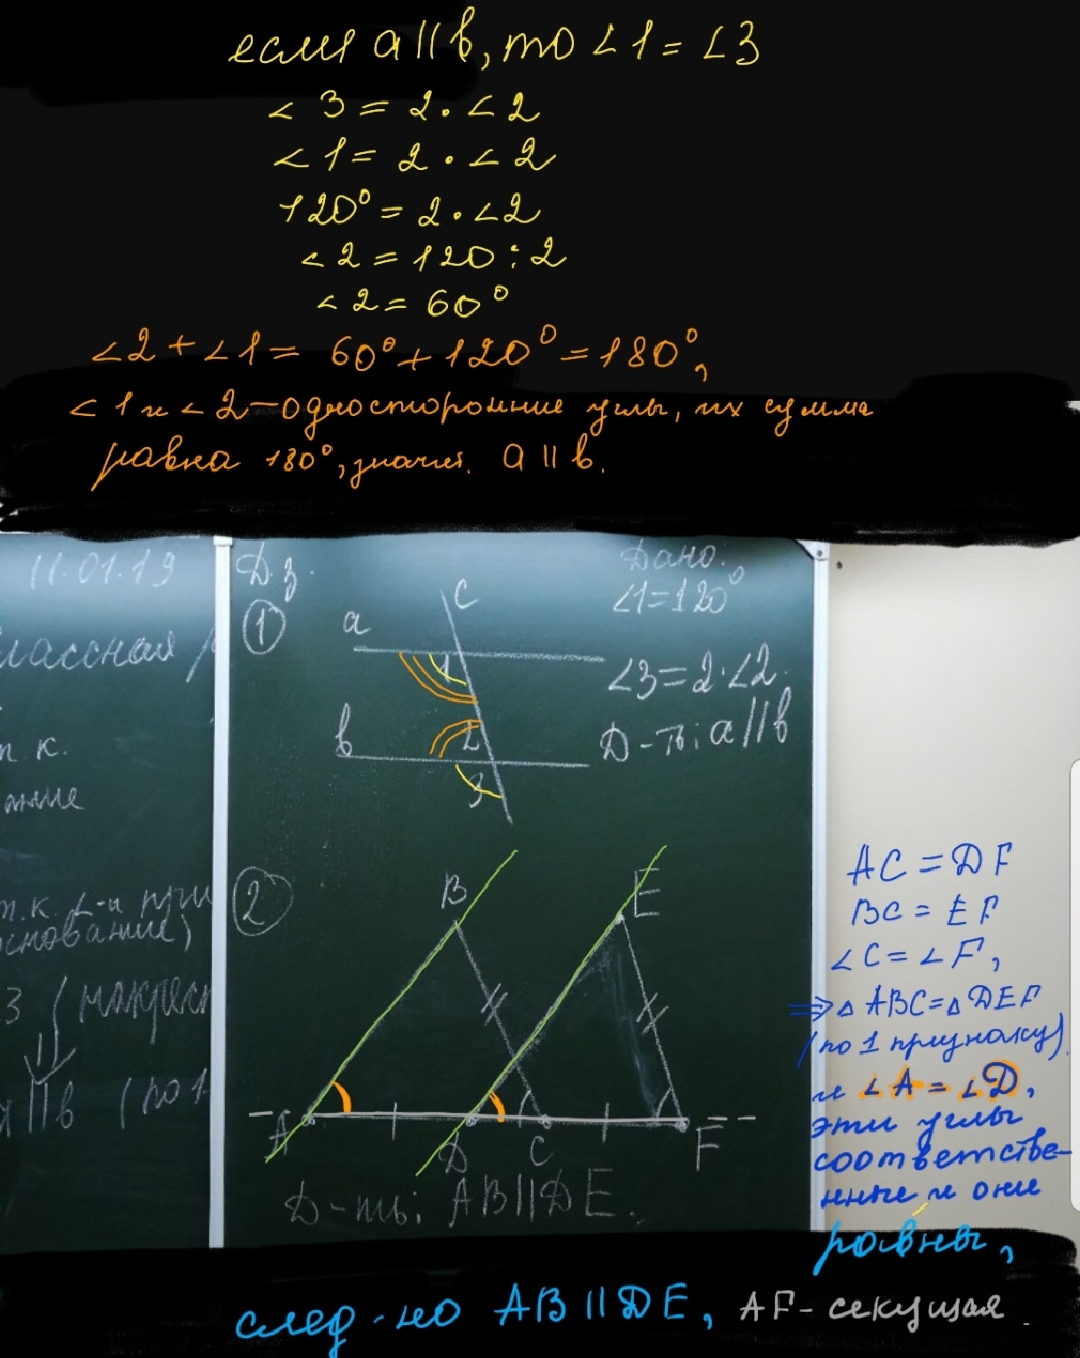 если a || b, то ∠1 = ∠3
∠3 = 2 · ∠2
∠1 = 2 · ∠2
120° = 2 · ∠2
∠2 = 120 : 2
∠2 = 60°
∠2 + ∠1 = 60° + 120° = 180°,
∠1 и ∠2 – односторонние углы, их сумма
равна 180°, значит. a || b.
11.01.19
Д.з.
лассная
т к.
т.к.
снование)
3
|| b (по 1
1
a
c
1
b
2
3
Дано:
∠1=120°
∠3=2·∠2.
Д-ть: a||b
2
B
E
A
D
C
F
Д-ть: AB||DE.
AC = DF
BC = EF
∠C = ∠F,
⇒ △ABC = △DEF
(по 1 признаку).
и ∠A = ∠D,
эти углы
соответстве-
нные и они
равны,
след-но AB || DE, AF – секущая.